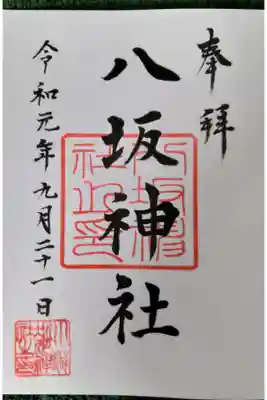 奉拝
八坂神社
令和元年九月二十一日